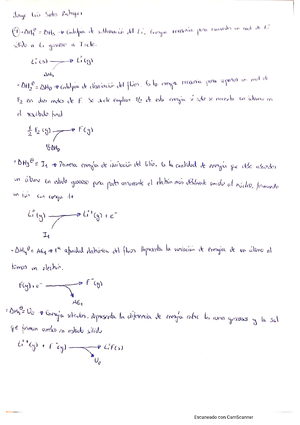 Jorge Luis
1) · ΔH₁º = ΔHs → Entalpía de sublimación del Li. Energía necesaria para convertir un mol de Li
sólido a Li gaseoso a T cte.
Li(s) → Li(g)
ΔHs
· ΔH₂º = ΔHD → Entalpía de disociación del flúor. Es la energía necesaria para separar un mol de
F₂ en dos moles de F. Se suele emplear 1/2 de esta energía si sólo se necesita un átomo en
el resultado final
½ F₂ (g) → F (g)
½ΔHD
· ΔH₃º = I₁ → Primera energía de ionización del litio. Es la cantidad de energía que debe
un átomo en estado gaseoso para el electrón más débilmente unido al núcleo, formando
un ión con carga 1+
Li (g) → Li⁺ (g) + e⁻
I₁
· ΔH₄º = AE₁ → 1ª afinidad electrónica del flúor. Representa la variación de energía de un átomo al
tomar un electrón.
F(g) + e⁻ → F⁻(g)
AE₁
· ΔH₅º = U₀ → Energía reticular. Representa la diferencia de energía entre los iones gaseosos y la sal
que forman ambos en estado sólido
Li⁺(g) + F⁻(g) → LiF(s)
U₀
Escaneado con CamScanner